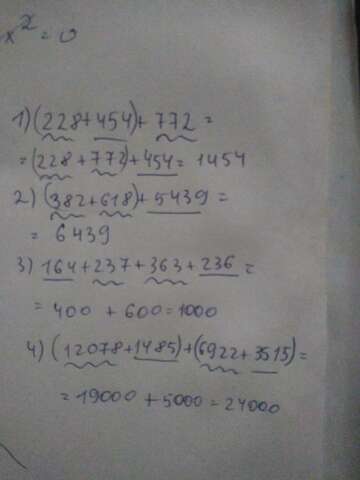 x² = 0
1) (228+454)+ 772 =
= (228 + 772) + 454 = 1454
2) (382+618)+5439 =
= 6439
3) 164 + 237 + 363 + 236 =
= 400 + 600 = 1000
4) (12078+1485)+(6922+3515)=
= 19000 + 5000 = 24000